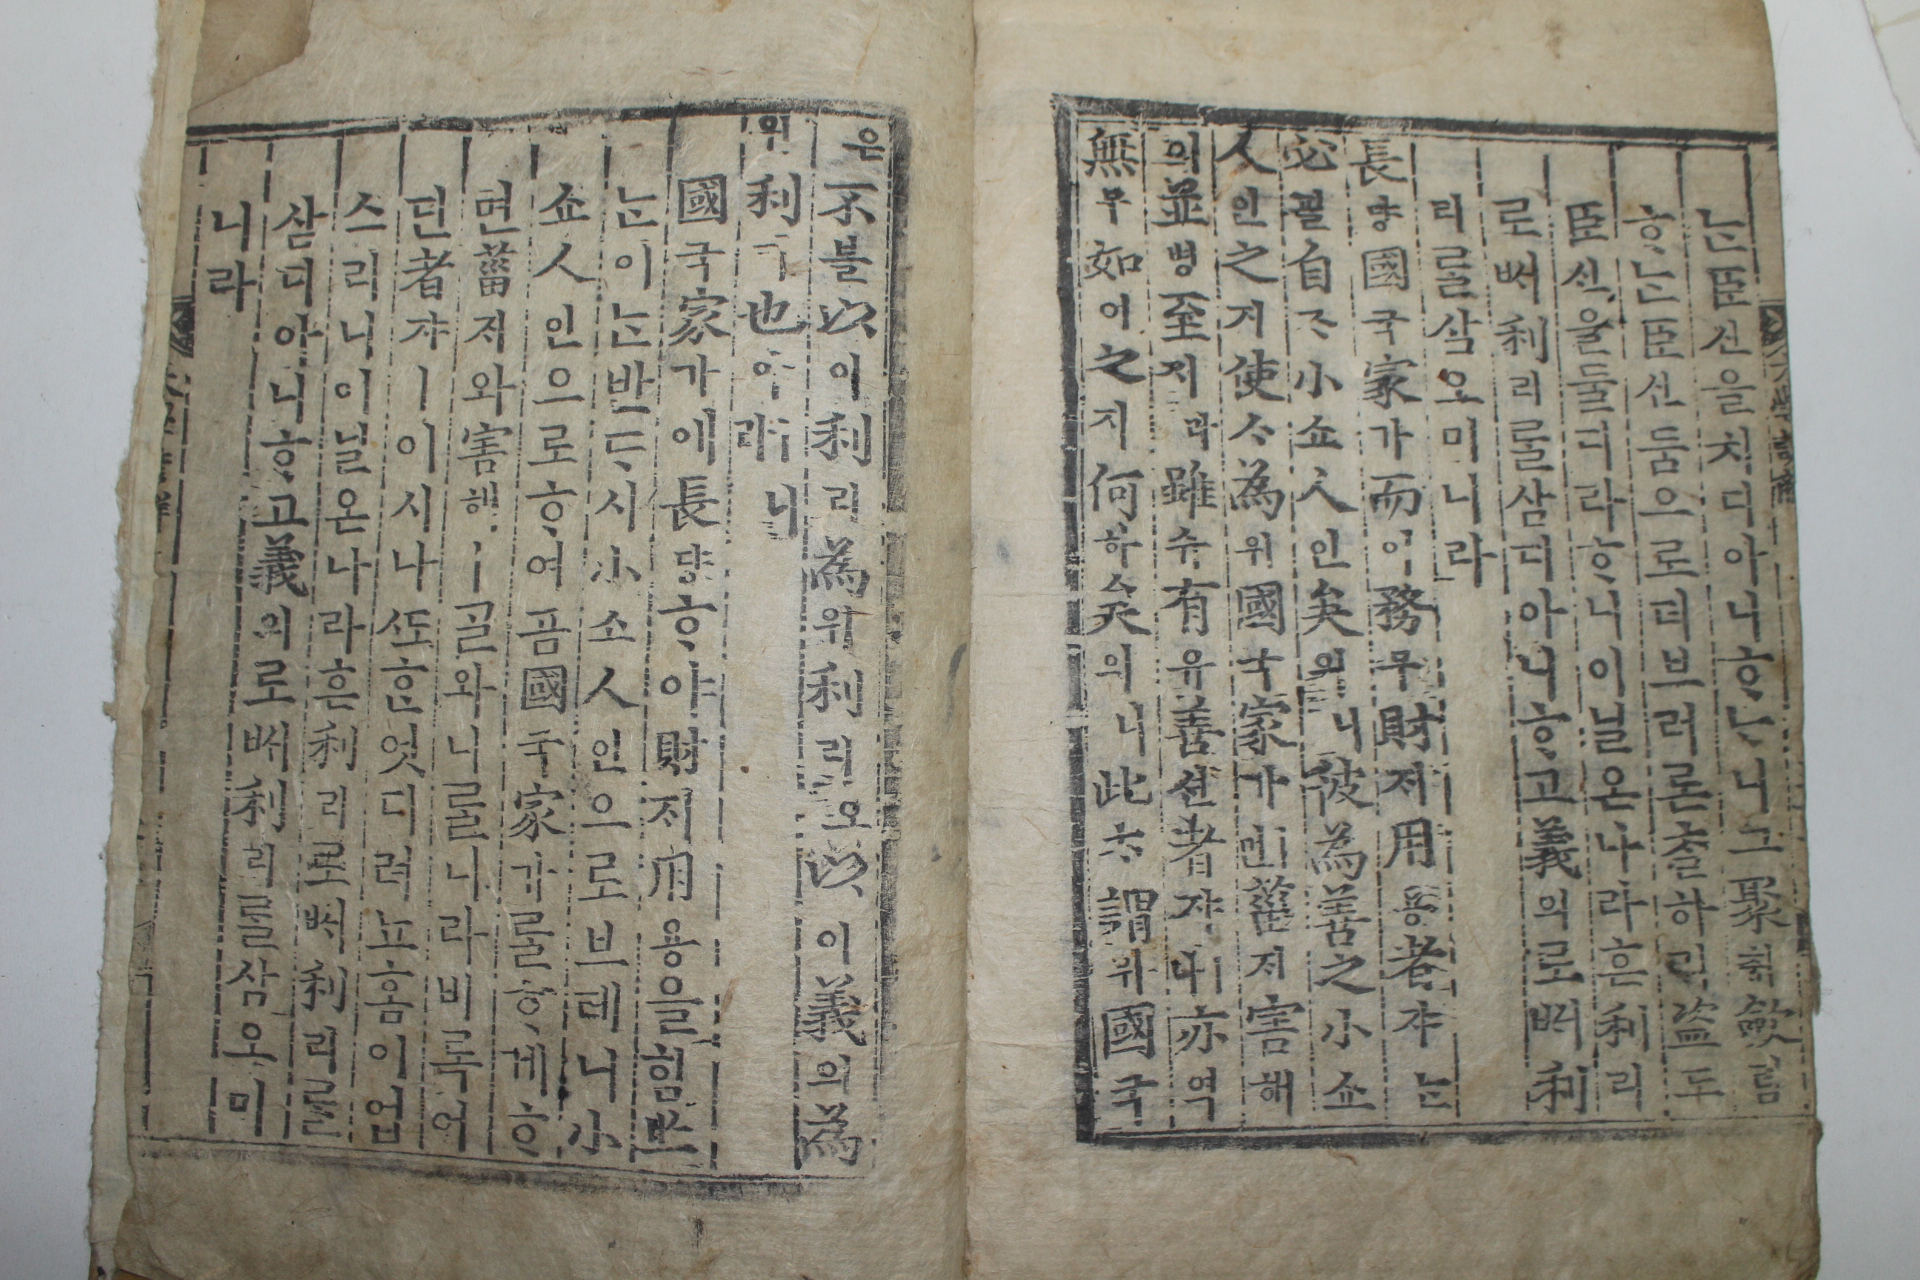 ᄂᆞᆫ臣신을치디아니ᄒᆞᄂᆞ니그聚ᄎᆔ斂렴
ᄒᆞᄂᆞᆫ臣신둠으로더브러론ᄎᆞᆯ하리盜도
臣신을둘디라ᄒᆞ니이닐온나라흔利리
로ᄡᅥ利리ᄅᆞᆯ삼디아니ᄒᆞ고義의로ᄡᅥ利
리ᄅᆞᆯ삼오미니라
長댱國국家가而이務무財ᄌᆡ用용者쟈ᄂᆞᆫ
必필自ᄌᆞ小쇼人인矣의니彼為善之小쇼
人인之지使ᄉᆞ為위國국家가ㅣ면菑ᄌᆡ害해
의並병至지라雖슈有유善션者쟈ㅣ나亦역
無무如여之지何하矣의니此ᄎᆞ謂위國국
은不블以이利리為위利리오以이義의為
위利리也야ㅣ니라
國국家가에長댱ᄒᆞ야財ᄌᆡ用용을힘ᄡᅳ
ᄂᆞᆫ이ᄂᆞᆫ반ᄃᆞ시小쇼人인으로브테니小
쇼人인으로ᄒᆞ여곰國국家가ᄅᆞᆯᄒᆞ게ᄒᆞ
면菑ᄌᆡ와害해ㅣᄀᆞᆯ와니ᄅᆞᆯ니라비록어
딘者쟈ㅣ이시나ᄯᅩᄒᆞᆫ엇디려뇨홈이업
스리니이닐온나라흔利리로ᄡᅥ利리ᄅᆞᆯ
삼디아니ᄒᆞ고義의로ᄡᅥ利리ᄅᆞᆯ삼오미
니라